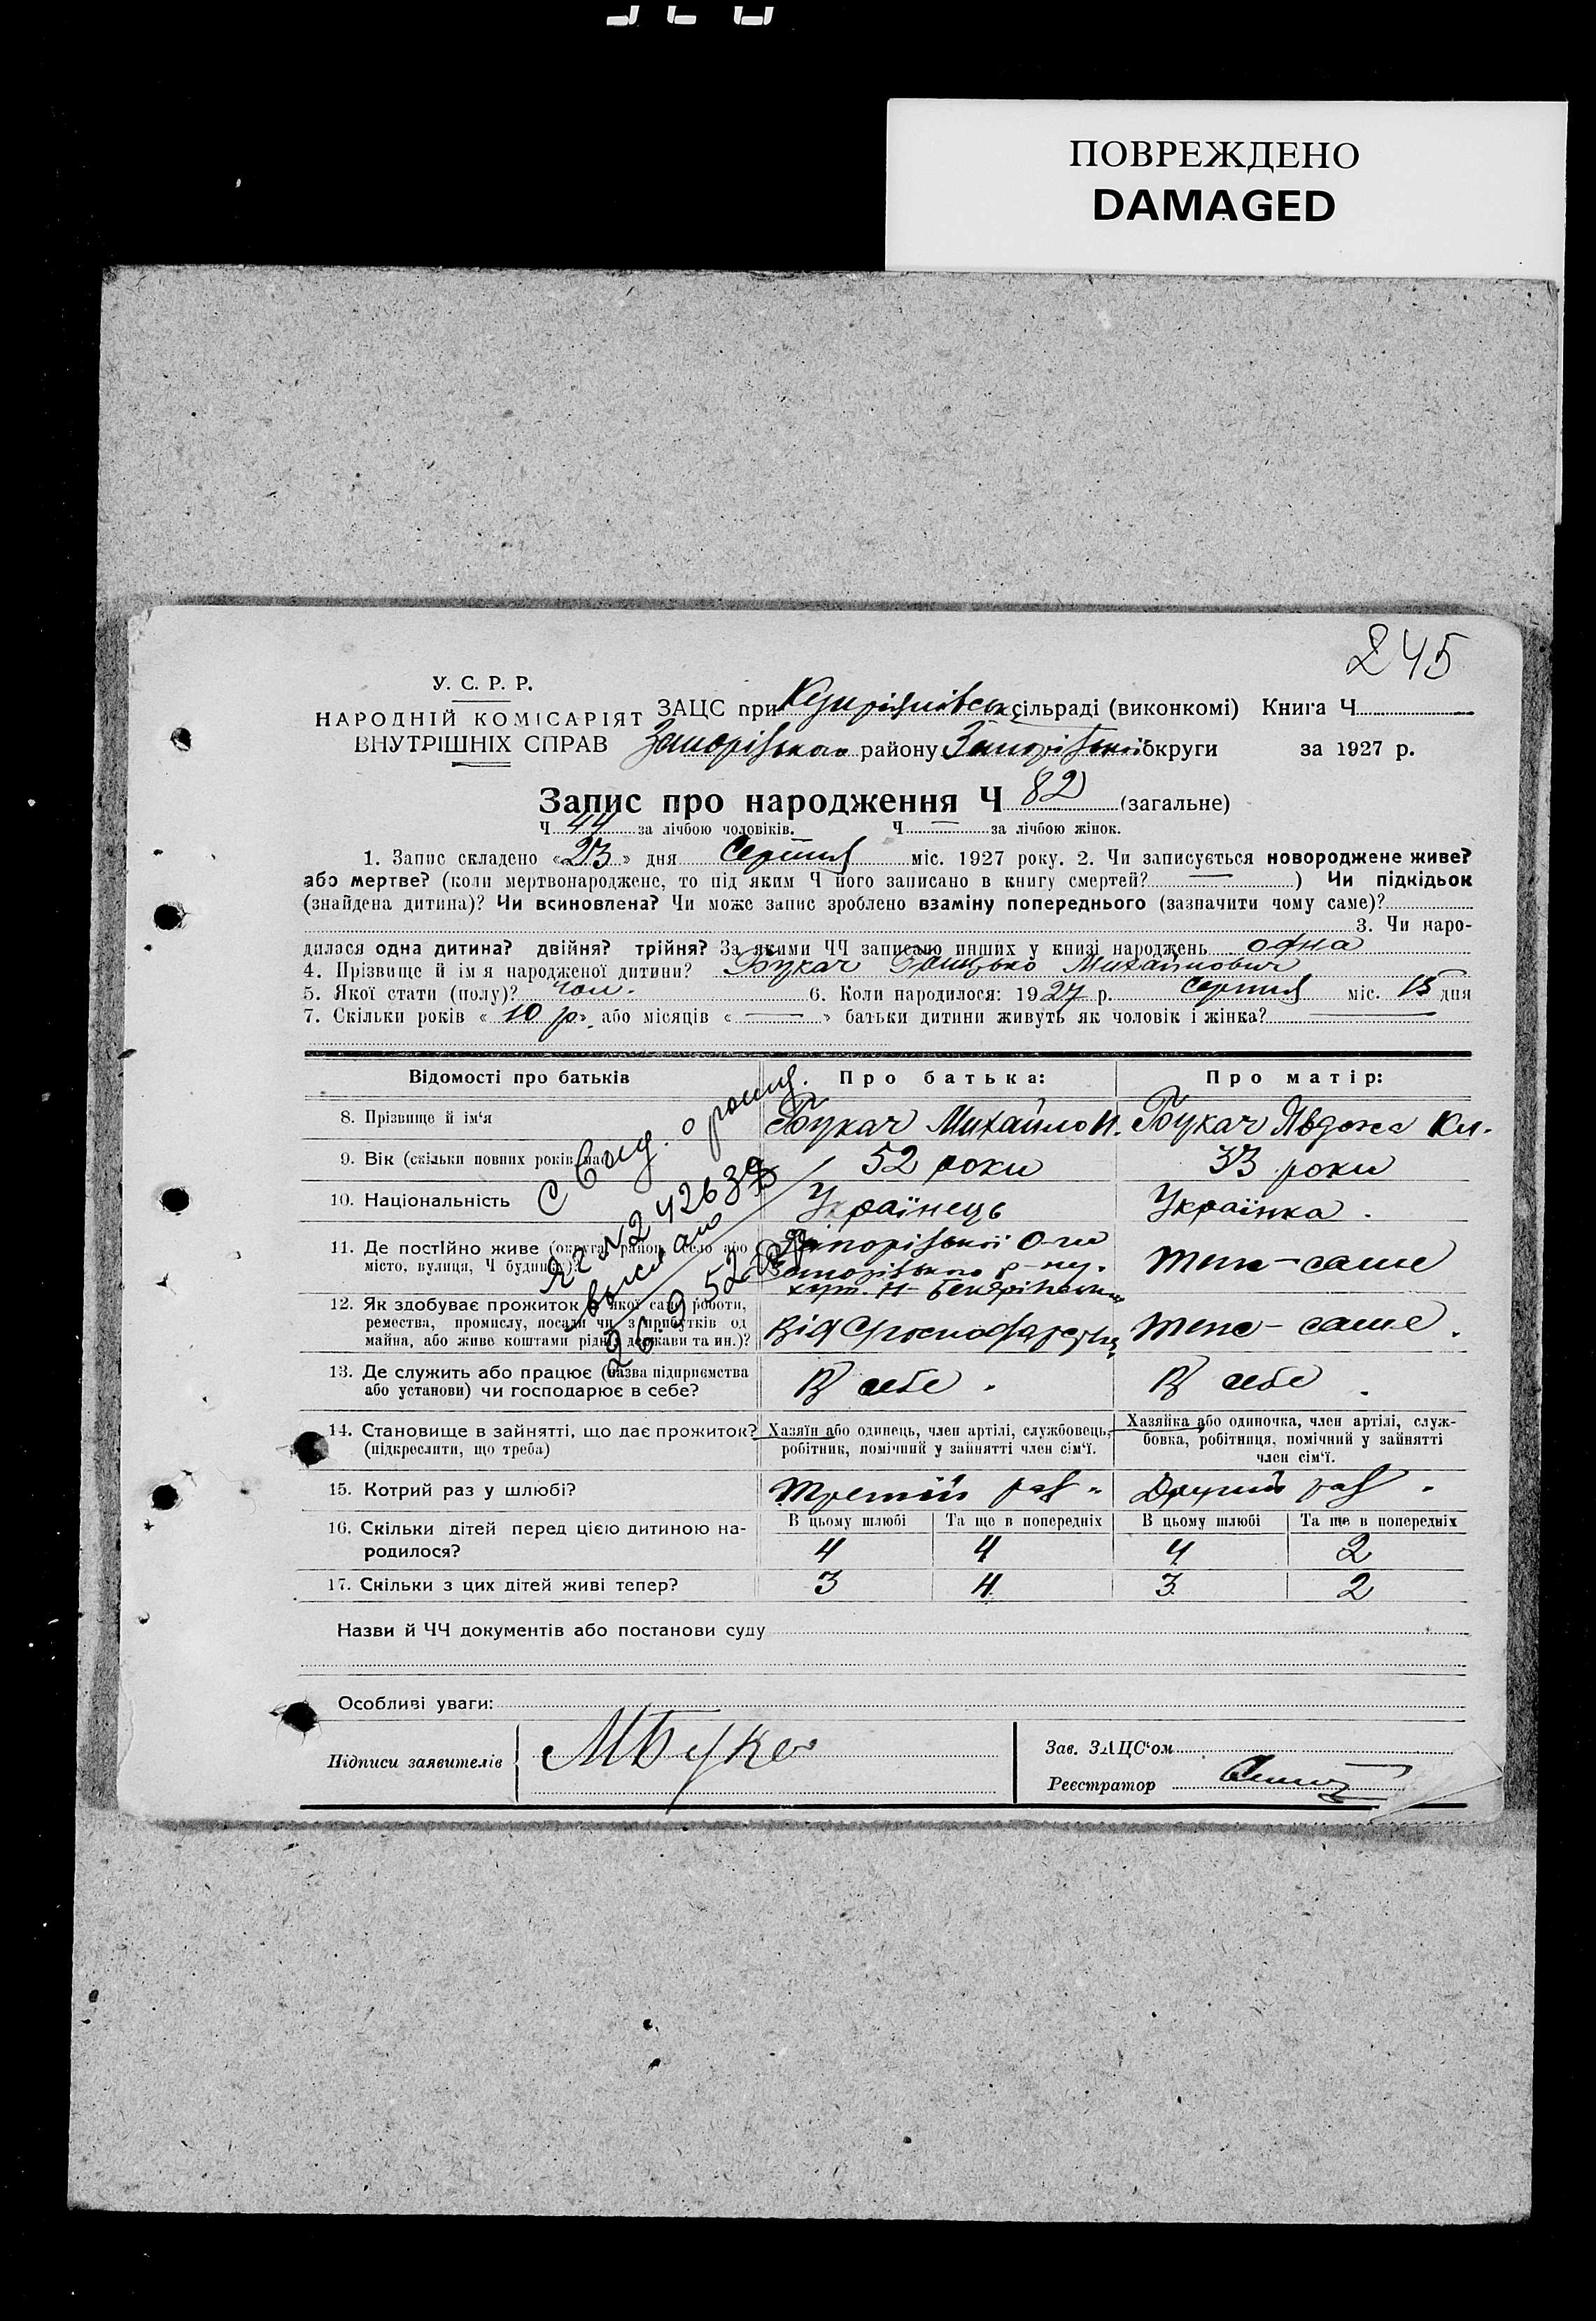 ПОВРЕЖДЕНО
DAMAGED
245
У. С. Р. Р.
НАРОДНІЙ КОМІСАРІЯТ
ВНУТРІШНІХ СПРАВ
ЗАЦС при Купріянівськ сільраді (виконкомі) Книга Ч
Запорізького району Запорізької округи за 1927 р.
Запис про народження Ч 82 (загальне)
Ч 44 за лічбою чоловіків. Ч — за лічбою жінок.
1. Запис складено «23» дня Серпня міс. 1927 року. 2. Чи записується новороджене живе?
або мертве? (коли мертвонароджене, то під яким Ч його записано в книгу смертей? — ) Чи підкідьок
(знайдена дитина)? Чи всиновлена? Чи може запис зроблено взаміну попереднього (зазначити чому саме)?
3. Чи наро-
дилася одна дитина? двійня? трійня? За якими ЧЧ записано инших у книзі народжень одна
4. Прізвище й ім я народженої дитини? Букач Михайлович
5. Якої стати (полу)? чол. 6. Коли народилося: 1927 р. серпня міс. 15 дня
7. Скільки років «10 р», або місяців « — » батьки дитини живуть як чоловік і жінка? —
Відомості про батьків
Про батька:
Про матір:
8. Прізвище й ім'я
Букач Михайло И.
Букач Явдоха Кл.
9. Вік (скільки повних років має)
52 роки
33 роки
10. Національність
Українець
Українка.
11. Де постійно живе (округа, район, село або
місто, вулиця, Ч будинку)?
Запорізької О-ги
Запорізького р-ну.
хут. Н-
теж-саме
12. Як здобуває прожиток з якої саме роботи,
ремества, промислу, посади чи з прибутків од
майна, або живе коштами рідні, держави та ин.)?
Від
теж-саме.
13. Де служить або працює (назва підприємства
або установи) чи господарює в себе?
В себе.
В себе.
14. Становище в зайнятті, що дає прожиток?
(підкреслити, що треба)
Хазяїн або одинець, член артілі, службовець,
робітник, помічний у зайнятті член сім'ї.
Хазяйка або одиночка, член артілі, служ-
бовка, робітниця, помічний у зайнятті
член сім'ї.
15. Котрий раз у шлюбі?
Третій раз
Другий раз
16. Скільки дітей перед цією дитиною на-
родилося?
В цьому шлюбі
Та ще в попередніх
В цьому шлюбі
Та ще в попередніх
4 4 4 2
17. Скільки з цих дітей живі тепер?
3 4 3 2
Назви й ЧЧ документів або постанови суду
Особливі уваги:
Підписи заявителів
МБука
Зав. ЗАЦС'ом
Реєстратор